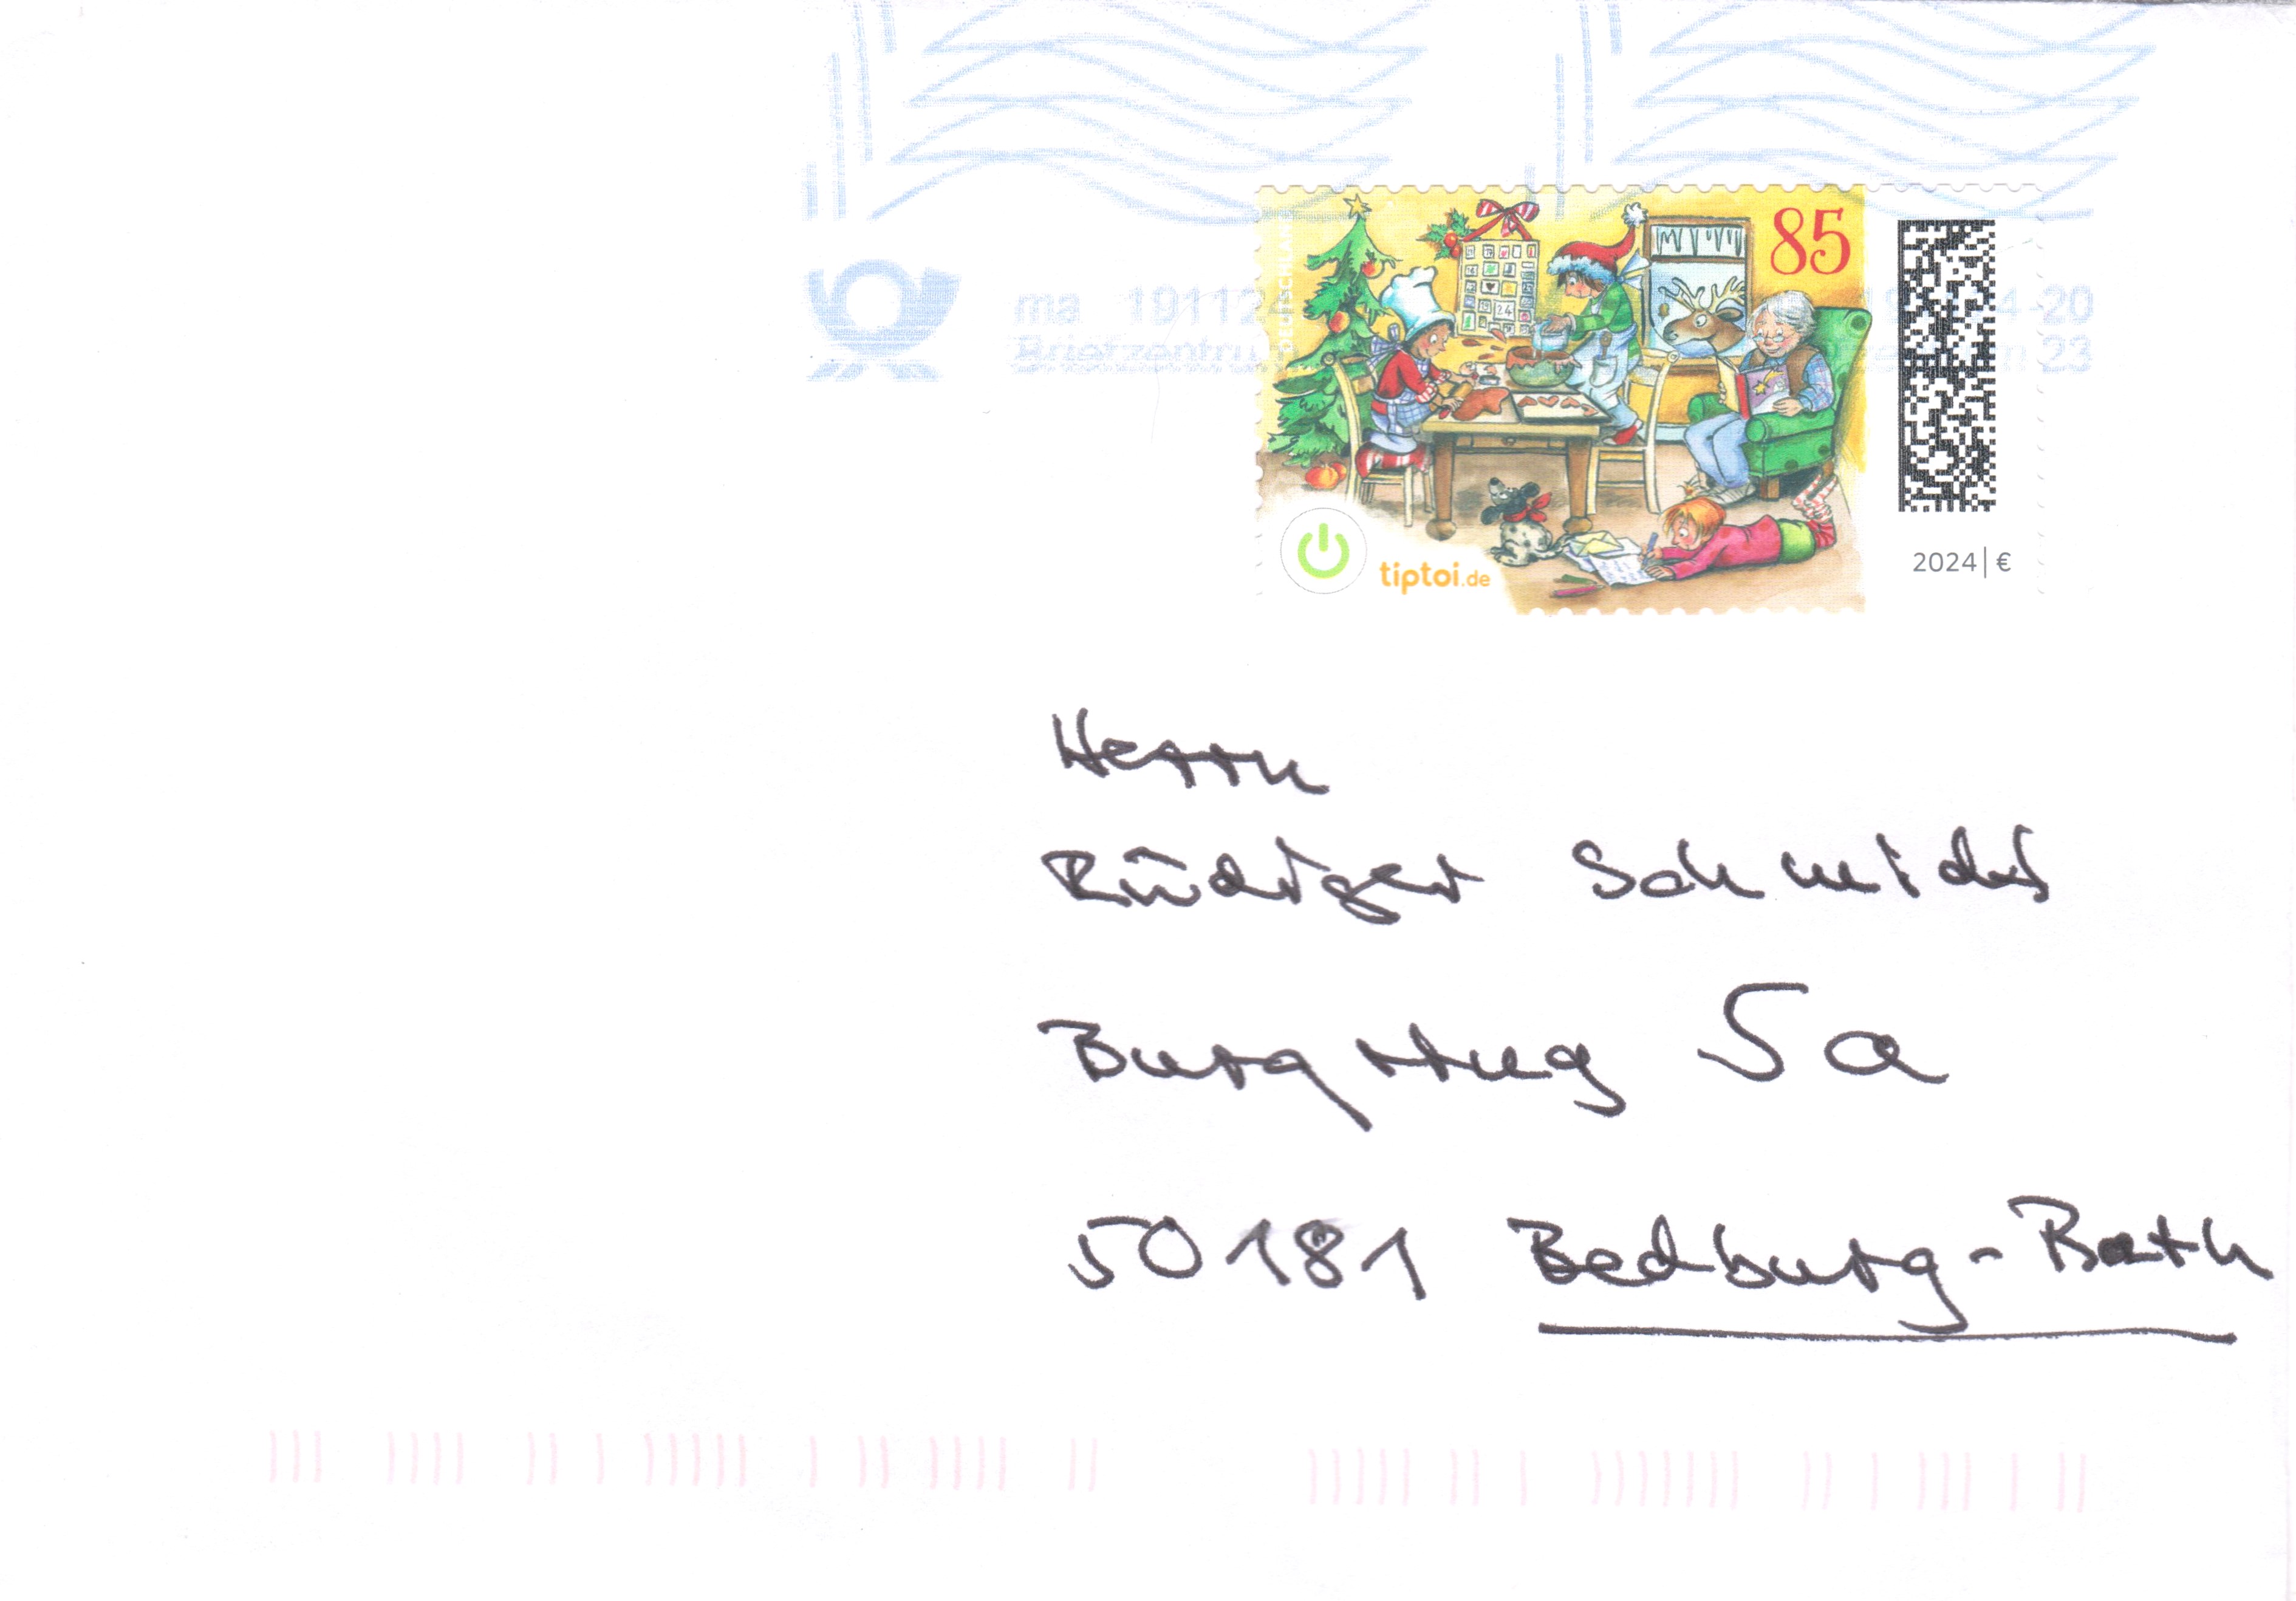 ma 191124
Briefzentrum
20
23
DEUTSCHLAND
85
24
tiptoi.de
2024|€
Herrn
Rüdiger Schmidt
Burgring 5a
50181 Bedburg-Rath